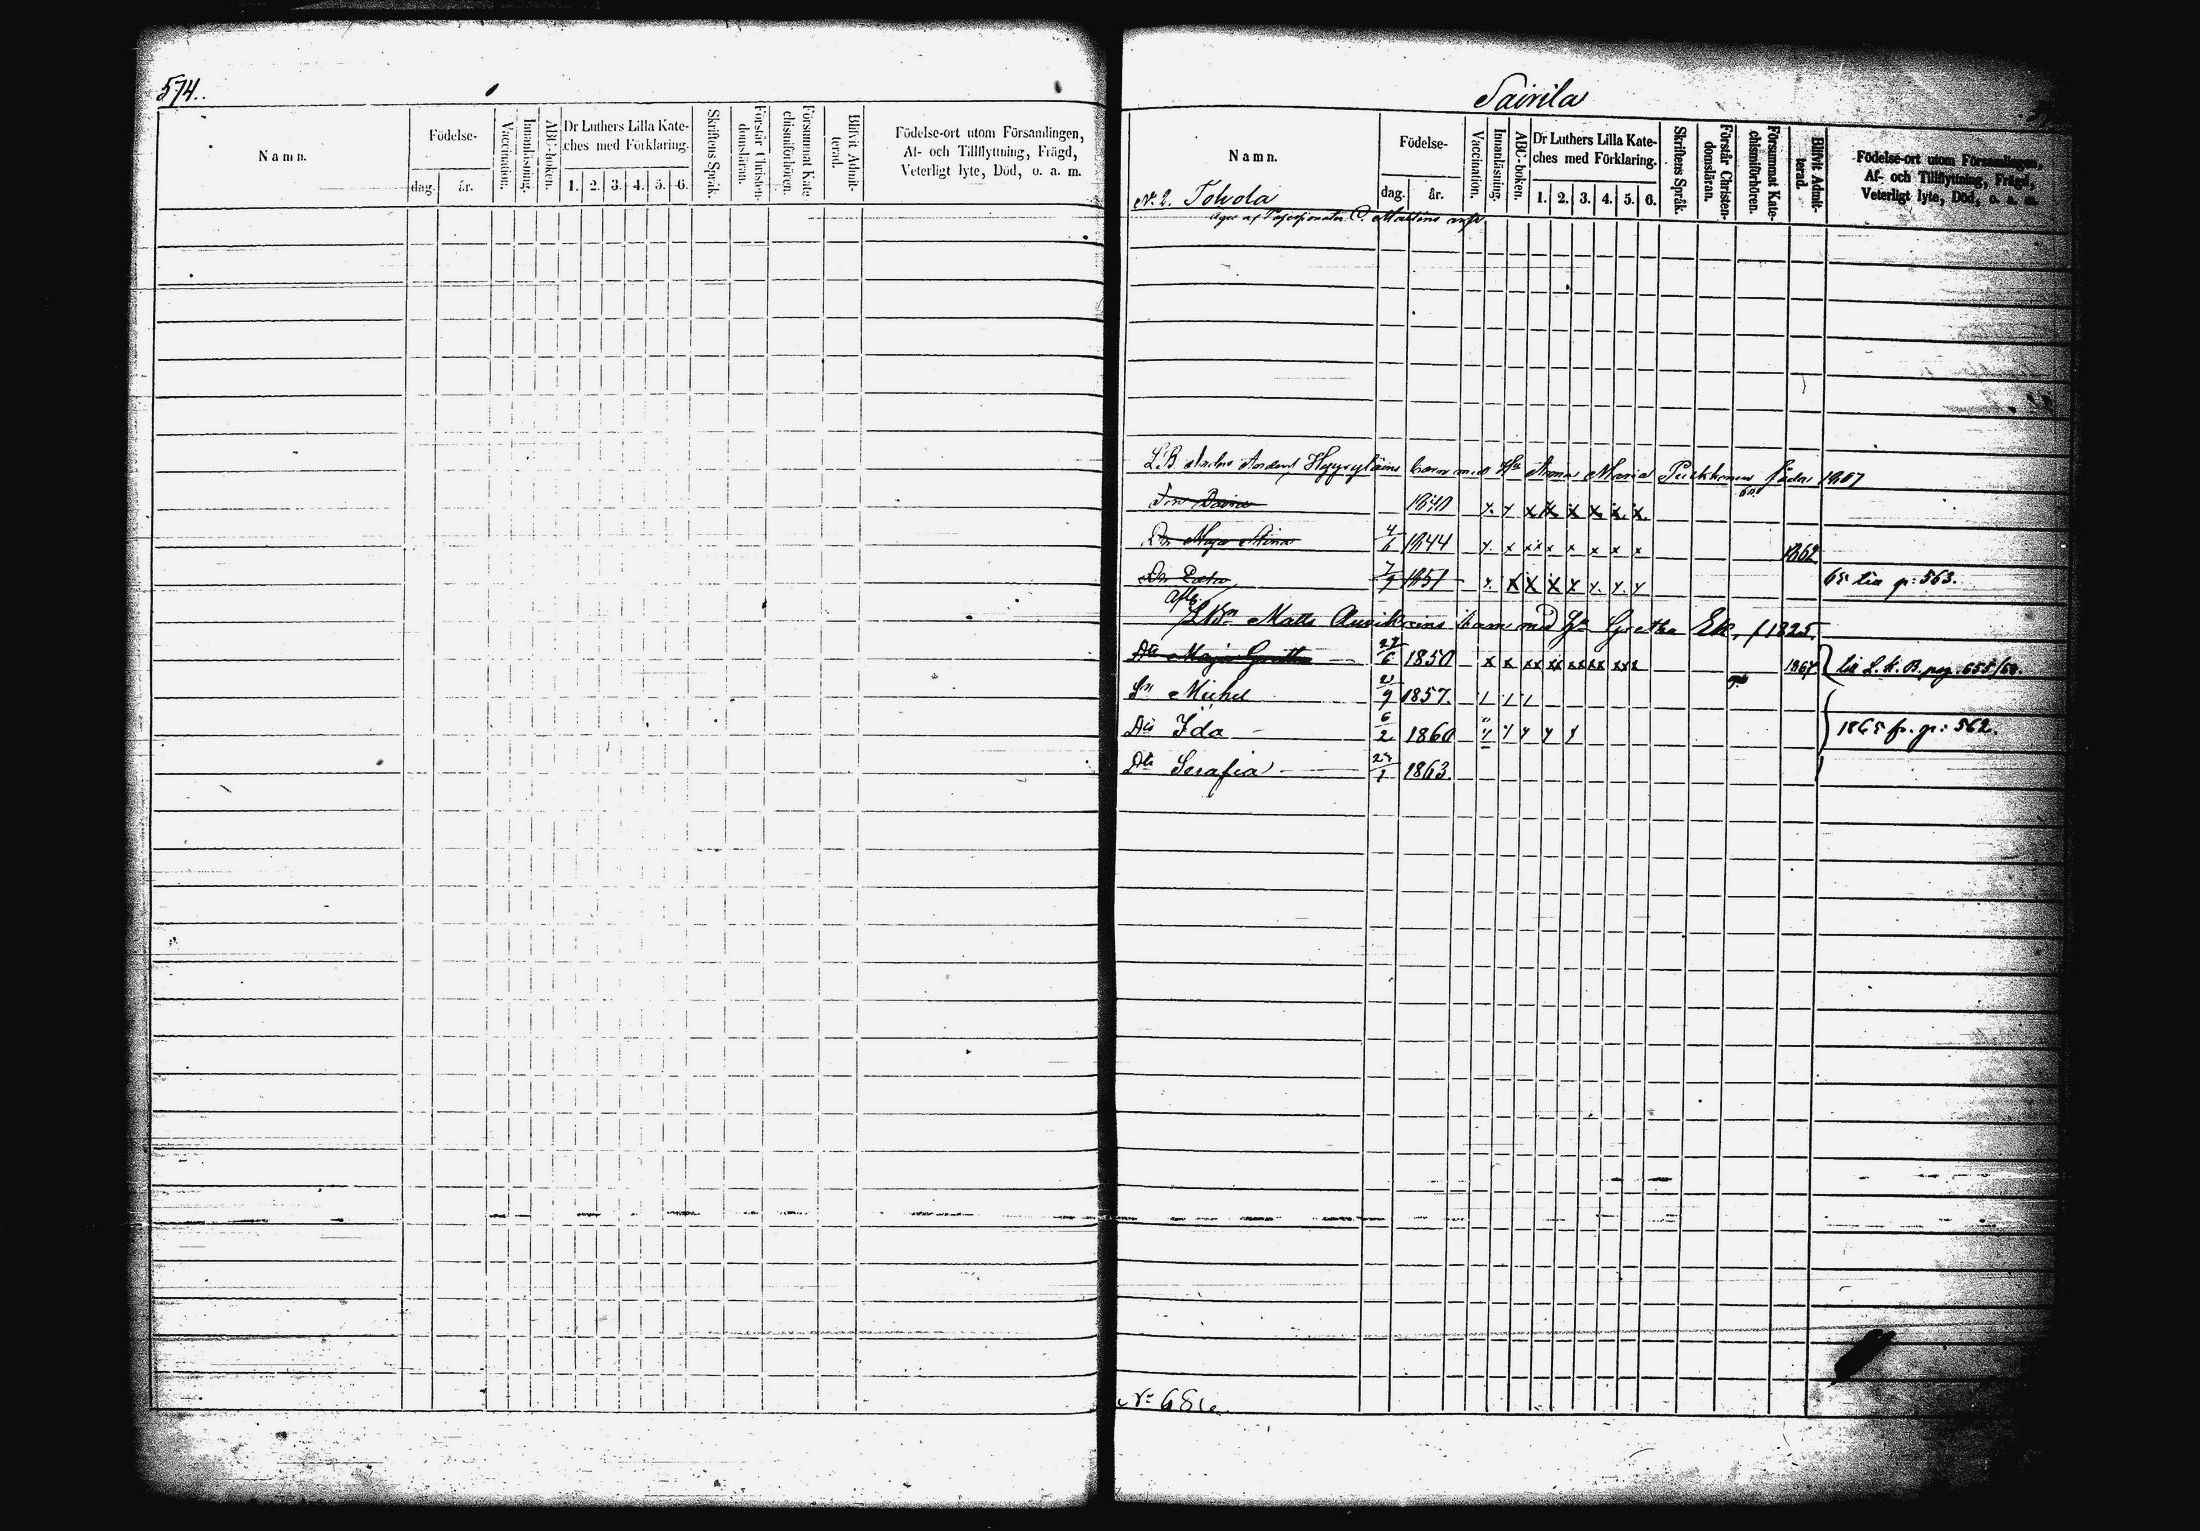 574.
Namn.
Födelse-
dag.
år.
Vaccination.
Innanläsning.
ABC-boken.
Dr Luthers Lilla Kate-
ches med Förklaring.
1. 2. 3. 4. 5. 6.
Skriftens Språk.
Förstår Christen-
domsläran.
Försummat Kate-
chismiförhören.
Blifvit Admit-
terad.
Födelse-ort utom Församlingen,
Af- och Tillflyttning, Frägd,
Veterligt lyte, Död, o. a. m.
Sairila
Namn.
Födelse-
dag.
år.
Vaccination.
Innanläsning.
ABC-boken.
Dr Luthers Lilla Kate-
ches med Förklaring.
1. 2. 3. 4. 5. 6.
Skriftens Språk.
Förstår Christen-
domsläran.
Försummat Kate-
chismiförhören.
Blifvit Admit-
terad.
Födelse-ort utom Församlingen,
Af- och Tillflyttning, Frägd,
Veterligt lyte, Död, o. a. m.
N. 2. Tolvola
Anna Maria födda 1807
1840 x x x x x x
Dr Maja Stina 4/6 1844 x x x x x x x 1862
Dr 7/9 1851 x x x x x x x 65 till p: 563.
Matts barn med Hu Gretha f 1825
Dtr Maja Gretha 1850 x x xx xx xx xx xxx 1867 till L. K. B. pag. 655/
Sn Michel 1857. / / /
Dtr Ida 6/2 1860 1865 fr. p: 562.
Dtr Serafia 1863.